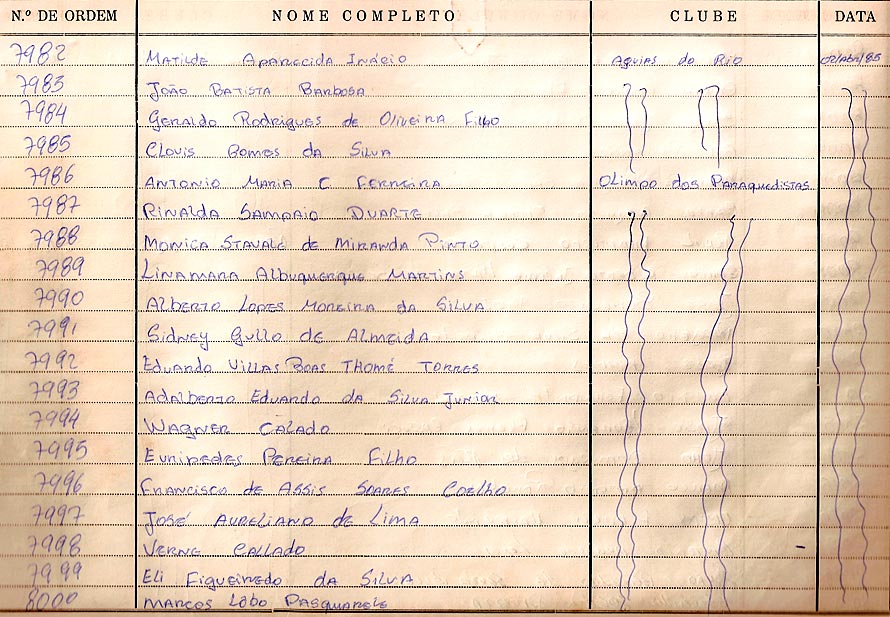 N.º DE ORDEM NOME COMPLETO CLUBE DATA
7982 Matilde Aparecida Inácio Aguias do Rio 02/Abril/85
7983 João Batista Barbosa
7984 Geraldo Rodrigues de Oliveira Filho
7985 Clovis Gomes da Silva
7986 Antonio Maria C Ferreira Olimpo dos Paraquedistas
7987 Rinalda Sampaio Duarte
7988 Monica Stavale de Miranda Pinto
7989 Linamara Albuquerque Martins
7990 Alberto Lopes Moreira da Silva
7991 Sidney Gullo de Almeida
7992 Eduardo Villas Boas Thomé Torres
7993 Adalberto Eduardo da Silva Junior
7994 Wagner Calado
7995 Euripedes Pereira Filho
7996 Francisco de Assis Soares Coelho
7997 José Aureliano de Lima
7998 Verne Callado
7999 Eli Figueiredo da Silva
8000 Marcos Lobo Pasquarele